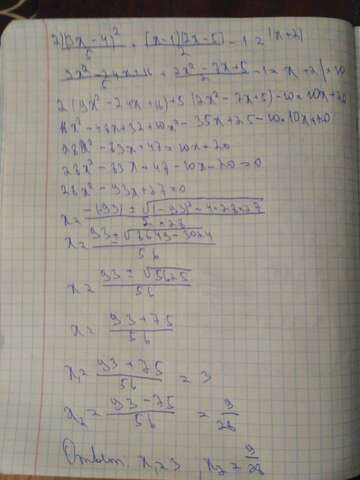 2) (3x-4)²/5 + (x-1)(2x-5)/2 - 1 = (x+2)
9x²-24x+16/5 + 2x²-7x+5/2 - 1 = x+2 | *10
2(9x²-24x+16)+5(2x²-7x+5)-10=10x+20
18x²-48x+32+10x²-35x+25-10=10x+20
28x²-83x+47=10x+20
28x²-83x+47-10x-20=0
28x²-93x+27=0
x= -(-93)±√(-93)²-4*28*27 / 2*28
x= 93±√8649-3024 / 56
x= 93±√5625 / 56
x= 93±75 / 56
x₁= 93+75 / 56 = 3
x₂= 93-75 / 56 = 9/28
Ответ: x₁=3, x₂=9/28